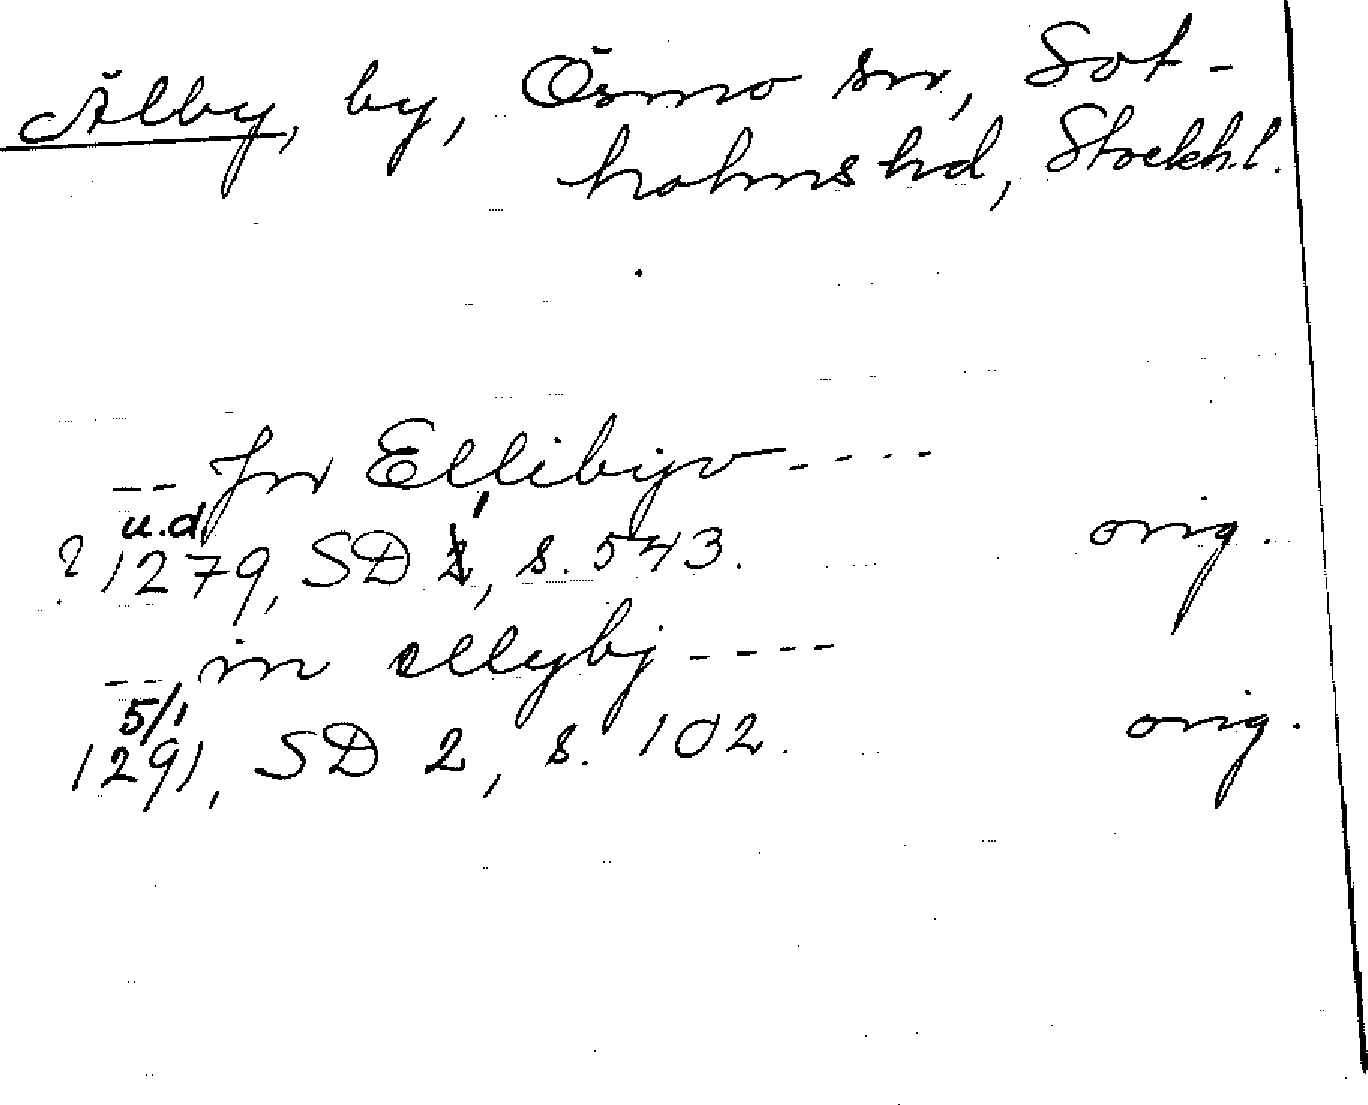 Älby, by, Ösmo sn, Sot-
holms hd, Stockh.l.
-- In Ellibyr ----
u.d.
? 1279, SD 1, s. 543. orig.
-- in ellybj ----
5/1
1291, SD 2, s. 102. orig.